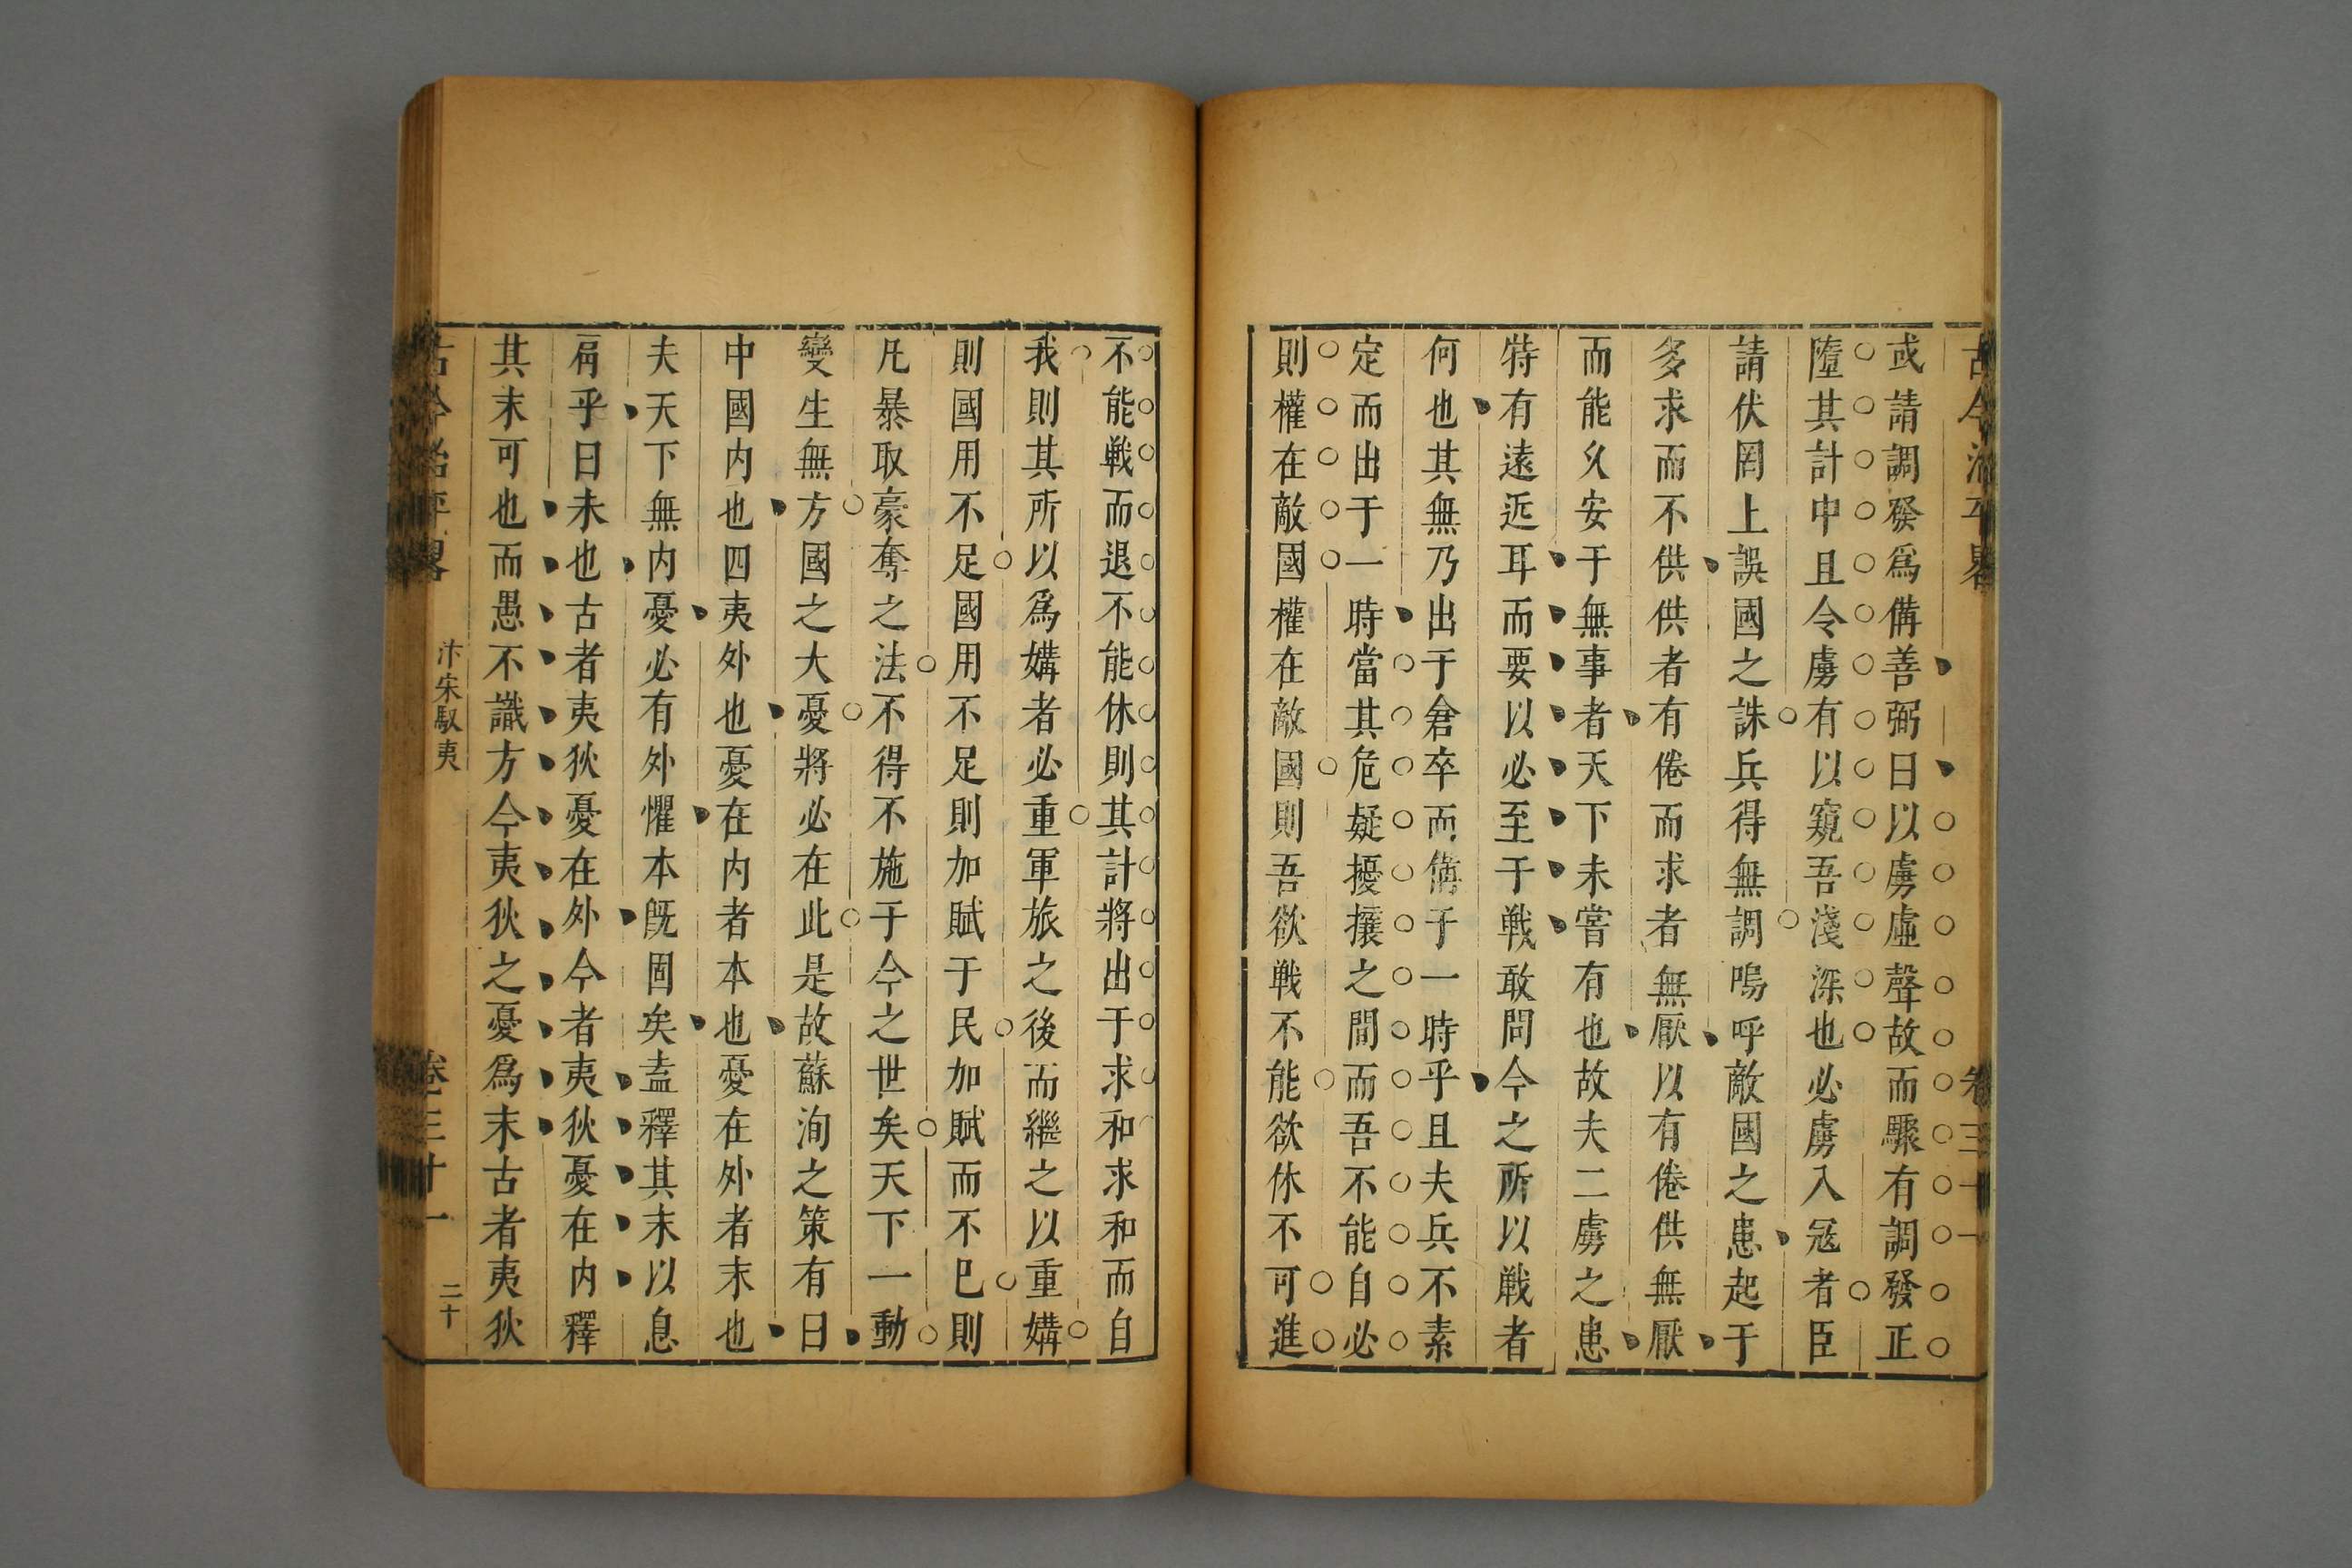 古今治平畧
卷三十一
或請調發爲備善弼曰以虜虛聲故而驟有調發正
墮其計中且令虜有以窺吾淺深也必虜入冦者臣
請伏罔上誤國之誅兵得無調嗚呼敵國之患起于
多求而不供供者有倦而求者無厭以有倦供無厭
而能久安于無事者天下未嘗有也故夫二虜之患
特有遠近耳而要以必至于戦敢問今之所以戦者
何也其無乃出于倉卒而備于一時乎且夫兵不素
定而出于一時當其危疑擾攘之間而吾不能自必
則權在敵國權在敵國則吾欲戦不能欲休不可進
不能戦而退不能休則其計將出于求和求和而自
我則其所以爲媾者必重軍旅之後而繼之以重媾
則國用不足國用不足則加賦于民加賦而不已則
凡暴取豪奪之法不得不施于今之世矣天下一動
變生無方國之大憂將必在此是故蘇洵之策有曰
中國内也四夷外也憂在内者本也憂在外者末也
夫天下無内憂必有外懼本旣固矣盍釋其末以息
肩乎曰未也古者夷狄憂在外今者夷狄憂在内釋
其末可也而愚不識方今夷狄之憂爲末古者夷狄
古今治平畧
汴宋馭夷
卷三十一
二十